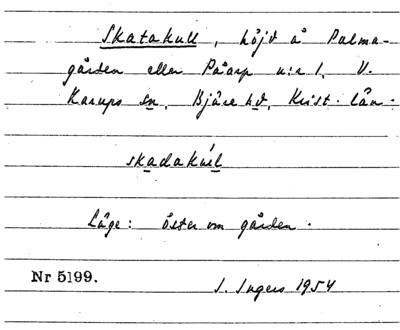 Skatakull, höjd å Palma-
gården eller Påarp n:r 1, V.
Karups sn, Bjäre hd, Krist. län.
skadakul
Läge: öster om gården.
Nr 5199. I. Ingers 1954